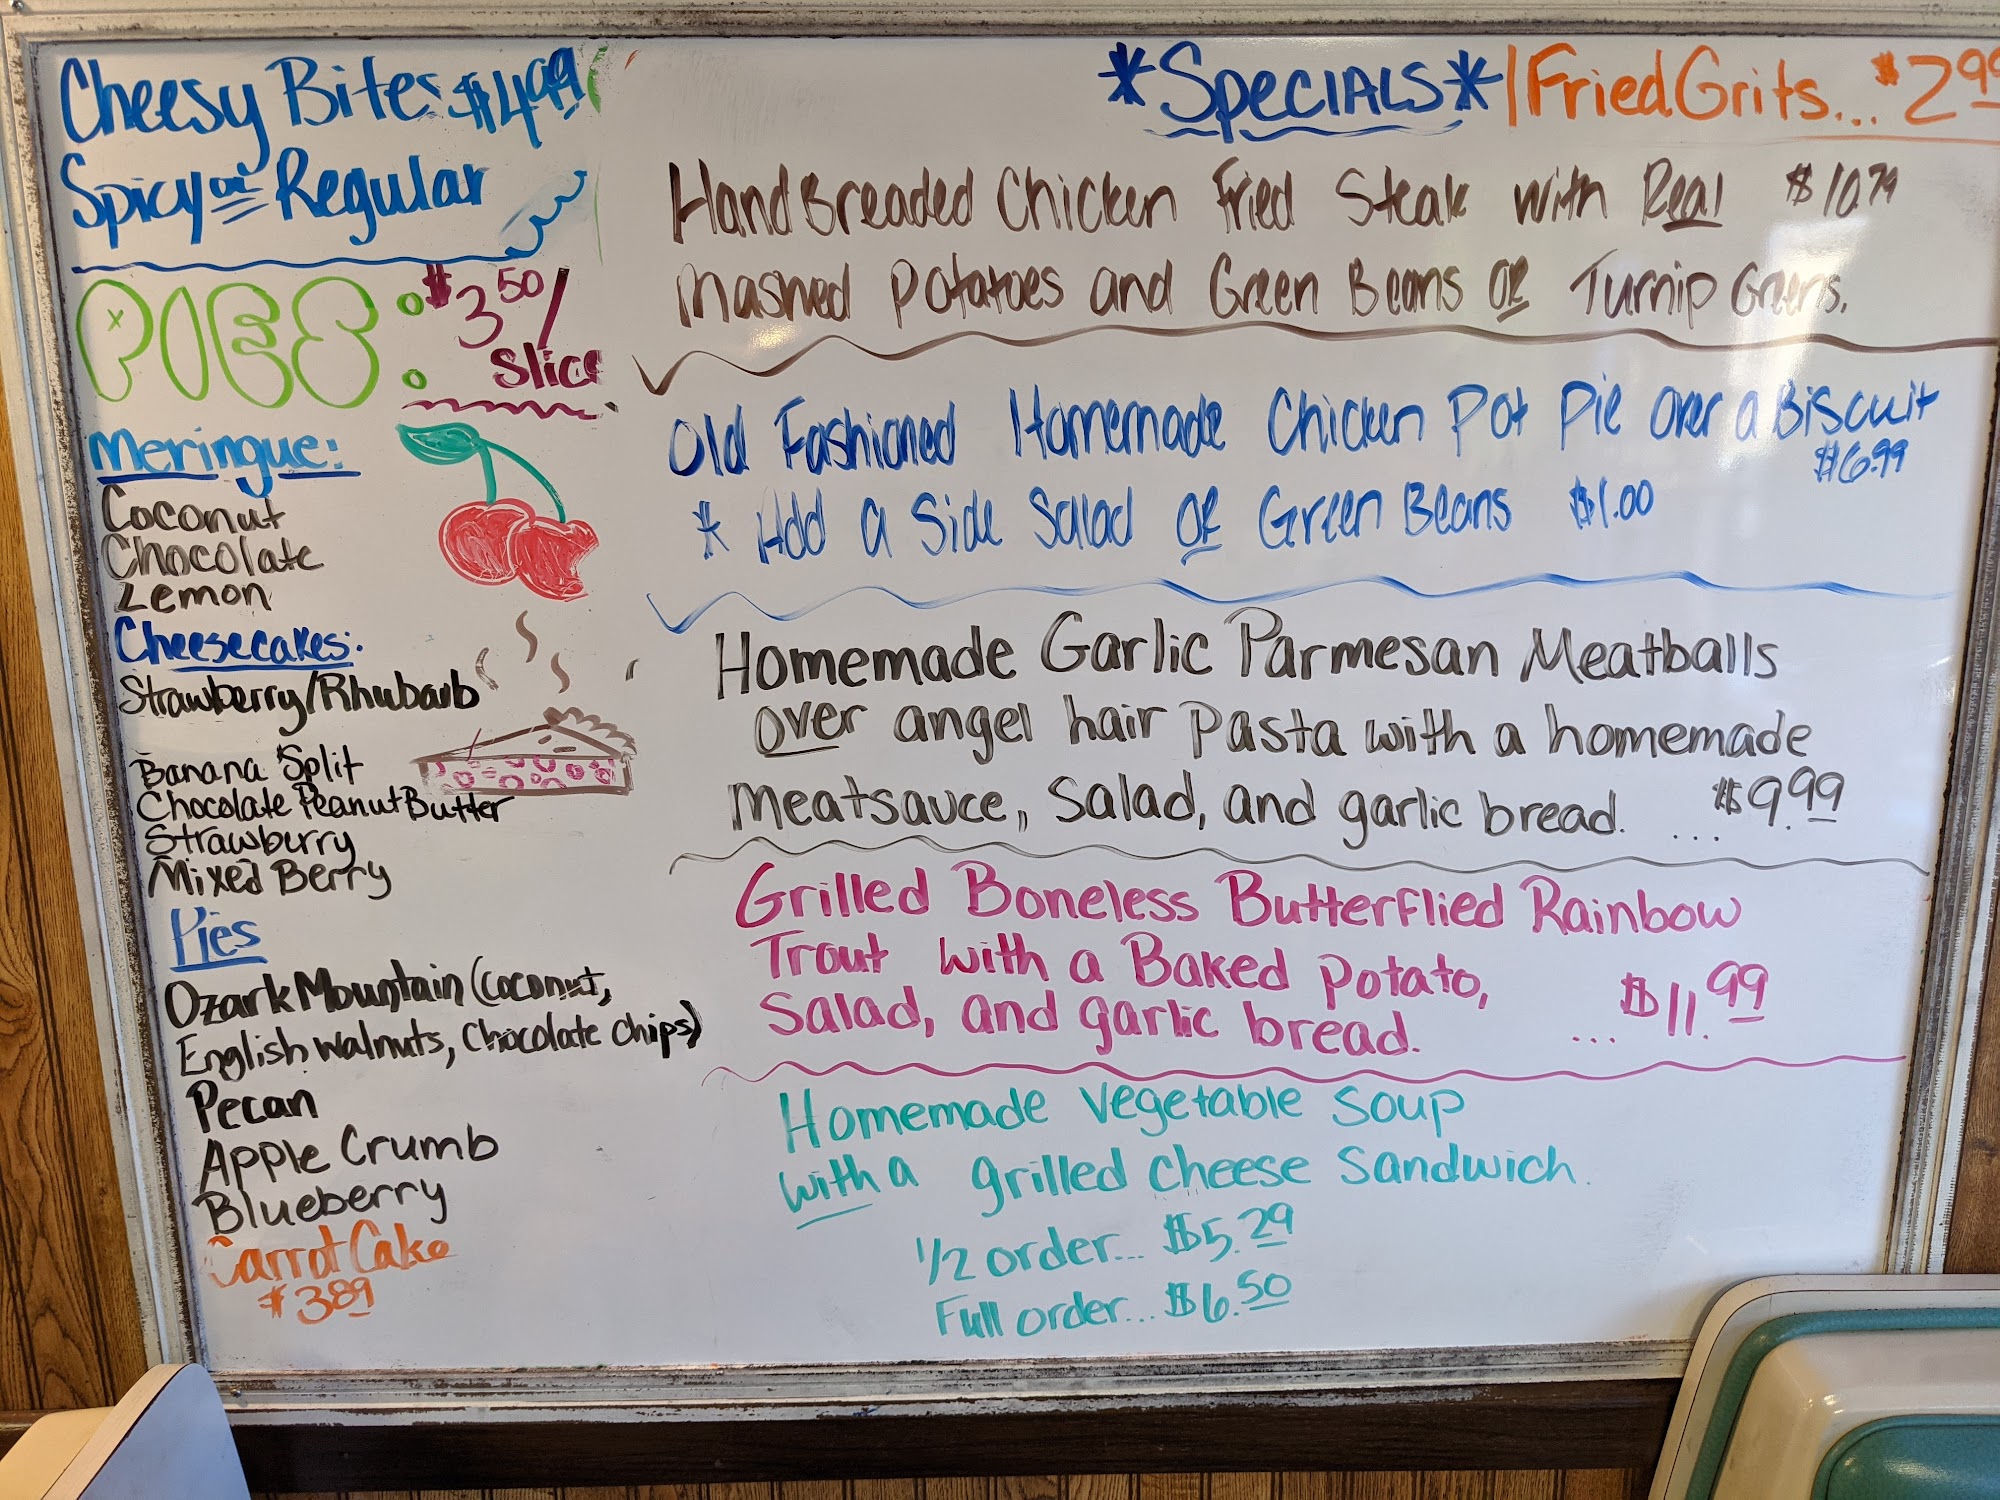 Cheesy Bites $4.99
Spicy or Regular
PIES: $3.50/
Slice
Meringue:
Coconut
Chocolate
Lemon
Cheesecakes:
Strawberry/Rhubarb
Banana Split
Chocolate Peanut Butter
Strawberry
Mixed Berry
Pies
Ozark Mountain (Coconut,
English walnuts, Chocolate Chips)
Pecan
Apple Crumb
Blueberry
Carrot Cake
$3.89
*Specials* | Fried Grits... $2.99
Hand Breaded Chicken Fried Steak with Real $10.79
Mashed Potatoes and Green Beans or Turnip Greens.
Old Fashioned Homemade Chicken Pot Pie over a Biscuit
$6.99
* Add a Side Salad or Green Beans $1.00
Homemade Garlic Parmesan Meatballs
over angel hair Pasta with a homemade
Meatsauce, Salad, and garlic bread. ... $9.99
Grilled Boneless Butterflied Rainbow
Trout with a Baked Potato,
Salad, and garlic bread. ... $11.99
Homemade Vegetable Soup
with a grilled cheese Sandwich.
1/2 order... $5.29
Full order... $6.50